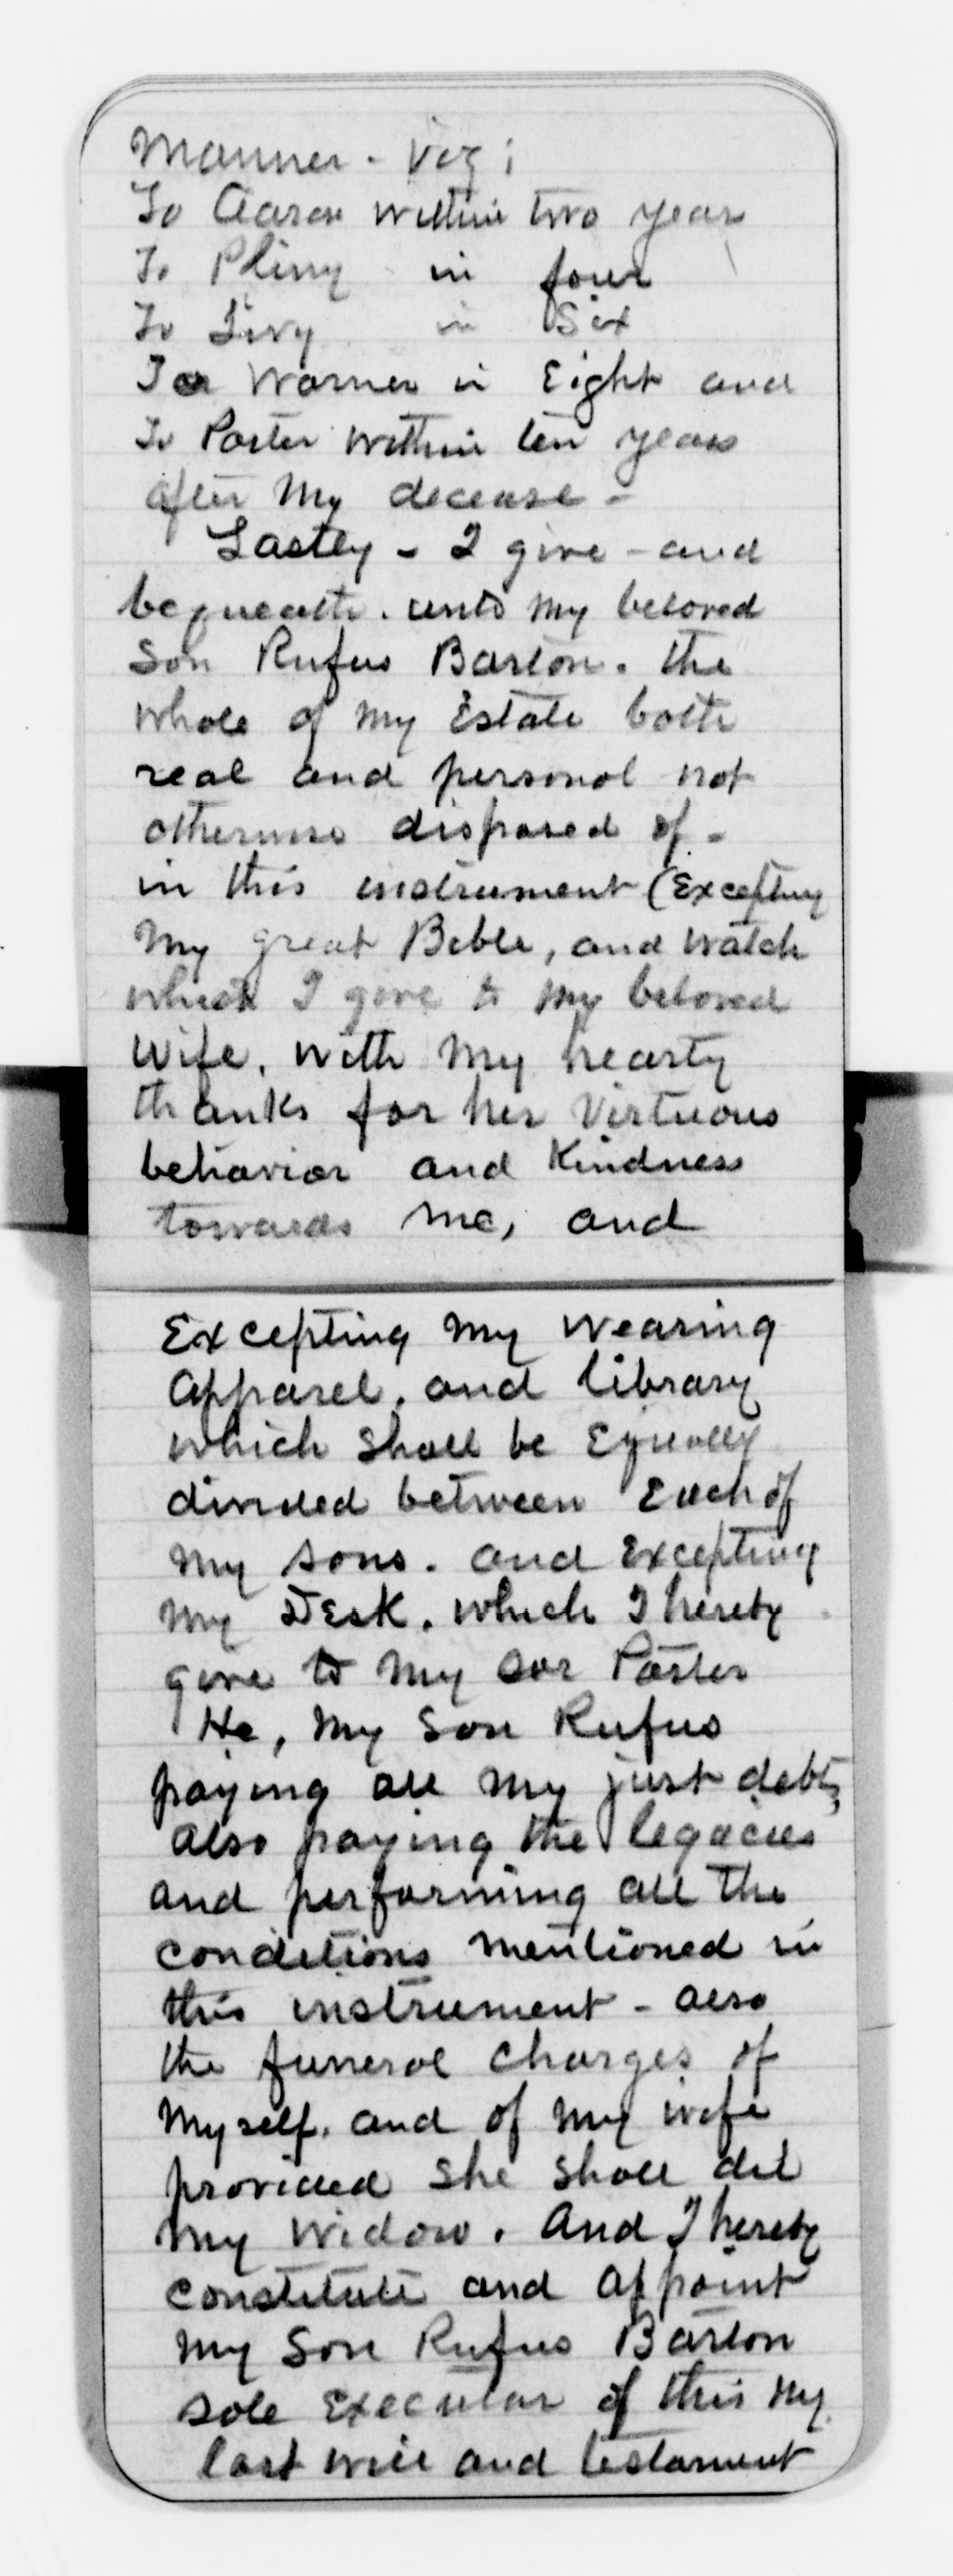 manner - viz;
To Aaron within two year
To Pliny in four
To Livy in Six
To Warner in Eight and
To Porter within ten years
after My decease -
Lastly - I give - and
bequeath. unto my beloved
Son Rufus Barton. the
whole of my Estate both
real and personal not
otherwise disposed of -
in this instrument (Excepting
My great Bible, and watch
which I give to my beloved
Wife, with My hearty
thanks for her Virtuous
behavior and Kindness
towards me, and
Excepting my wearing
Apparel, and library
which shall be Equally
divided between Each of
my sons. and Excepting
my Desk. which I hereby
give to my son Porter
He, my Son Rufus
paying all my just debts,
also paying the legacies
and performing all the
conditions mentioned in
this instrument - also
the funeral charges of
Myself. and of my wife
provided she shall die
my widow. And I hereby
constitute and appoint
my Son Rufus Barton
sole Executor of this my
last will and testament